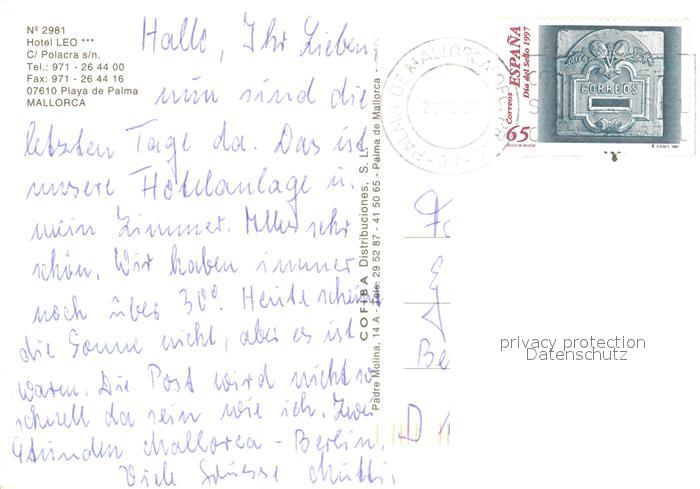 Nº 2981
Hotel LEO ***
C/ Polacra s/n.
Tel.: 971 - 26 44 00
Fax: 971 - 26 44 16
07610 Playa de Palma
MALLORCA
Hallo, Ihr Lieben,
nun sind die
letzten Tage da. Das ist
unsere Hotelanlage u.
mein Zimmer. Alles sehr
schön. Wir haben immer
noch über 30°. Heute scheint
die Sonne nicht, aber es ist
warm. Die Post wird nicht so
schnell da sein wie ich. Zwei
Stunden Mallorca - Berlin.
Viele Grüsse Mutti.
COFIBA Distribuciones, S. L.
Padre Molina, 14 A - Tels. 29 52 87 - 41 50 65 - Palma de Mallorca -
PALMA DE MALLORCA
07
ESPAÑA
Correos
Día del Sello 1997
65
CORREOS
BOCA DE BUZÓN
F.N.M.T. 1997
Be
D 1
privacy protection
Datenschutz